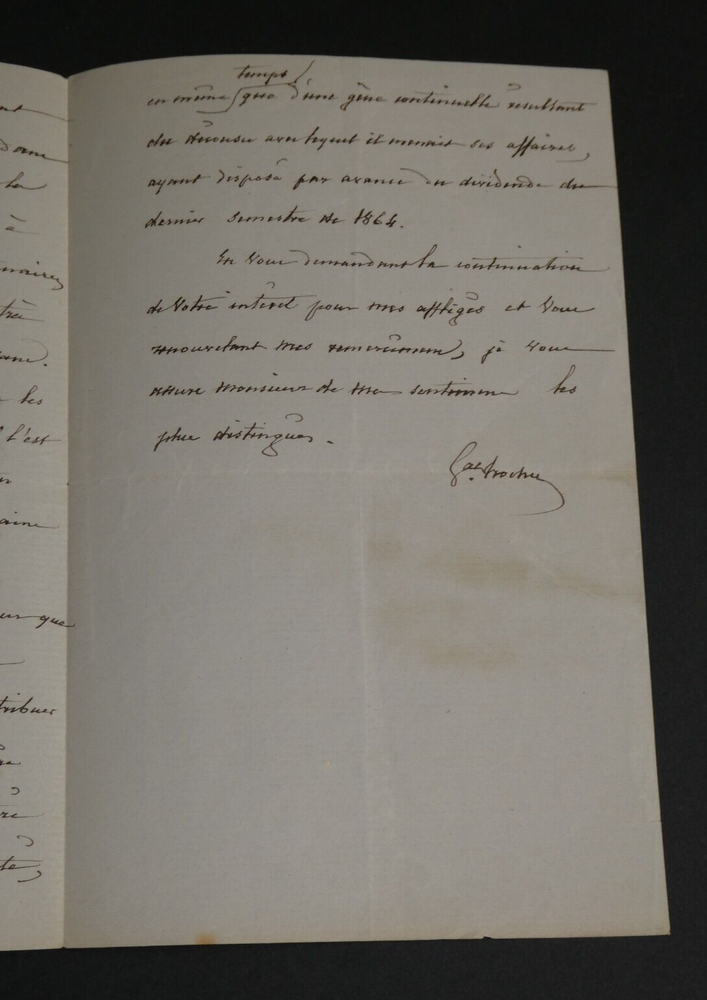 ant
dame
la
à
maires
très
les
l'est
aine
que
tribuer
temps
en même que d'une gêne continuelle résultant
du décousu avec lequel il menait ses affaires,
ayant disposé par avance du dividende du
dernier semestre de 1864.
En vous demandant la continuation
de votre intérêt pour mes affligés et vous
renouvelant mes remerciemens, je vous
assure monsieur de mes sentimens les
plus distingués.
Gal Trochu